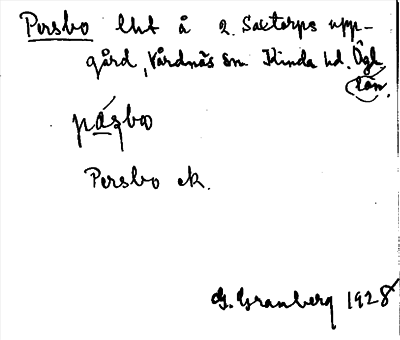 Persbo lht å 2. Saxtorps upp-
gård, Vårdnäs sn. Kinda hd. Ögl.
län.
pásbo
Persbo ek.
G. Granberg 1928